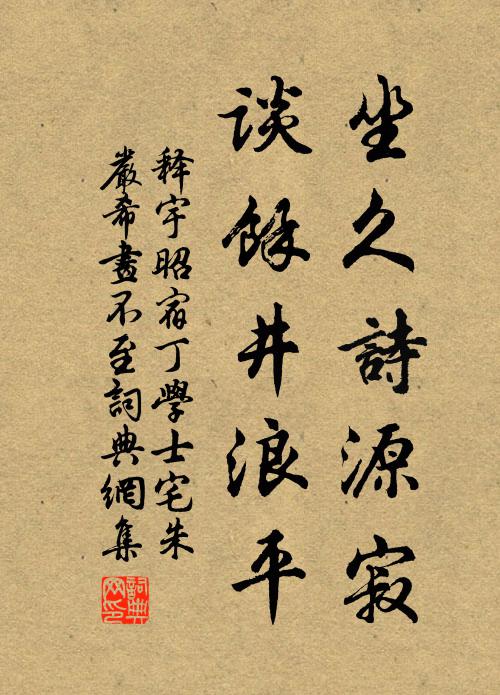 坐久詩源寂
談餘井浪平
释宇昭宿丁學士宅朱
嚴希晝不至詞典網集
詞典网印